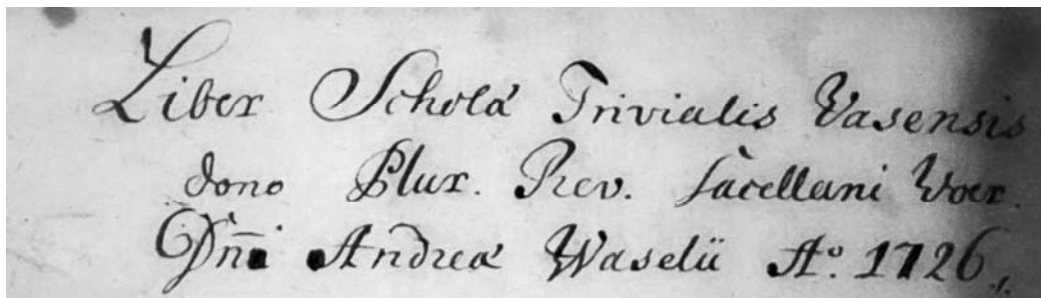 Liber Scholæ Trivialis Vasensis
dono Plur. Rev. Sacellani Woer.
Dn̄i Andreæ Waselii Aº. 1726.